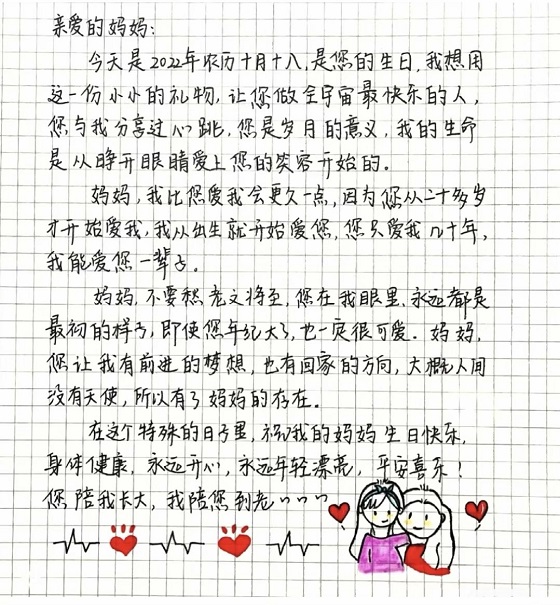 亲爱的妈妈:
今天是2022年农历十月十八,是您的生日,我想用
这一份小小的礼物,让您做全宇宙最快乐的人,
您与我分享过心跳,您是岁月的意义,我的生命
是从睁开眼睛爱上您的笑容开始的。
妈妈,我比您爱我会更久一点,因为您从二十多岁
才开始爱我,我从出生就开始爱您,您只爱我几十年,
我能爱您一辈子。
妈妈,不要愁老之将至,您在我眼里,永远都是
最初的样子,即使您年纪大了,也一定很可爱。妈妈,
您让我有前进的梦想,也有回家的方向,大概人间
没有天使,所以有了妈妈的存在。
在这个特殊的日子里,祝我的妈妈生日快乐,
身体健康,永远开心,永远年轻漂亮,平安喜乐!
您陪我长大,我陪您到老~~~